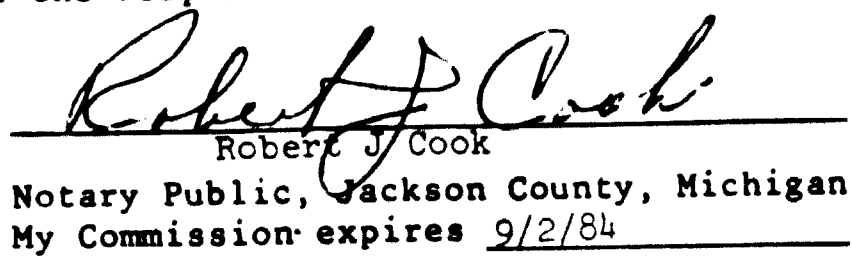 Robert J Cook
Robert J Cook
Notary Public, Jackson County, Michigan
My Commission expires 9/2/84